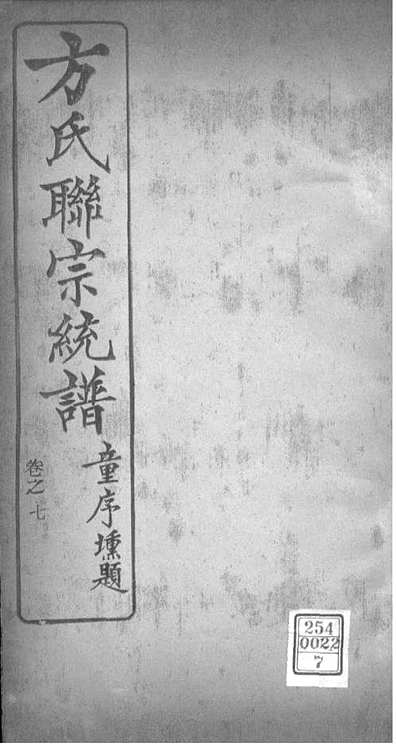 方氏聯宗統譜
童序壎題
卷之七
254
0022
7